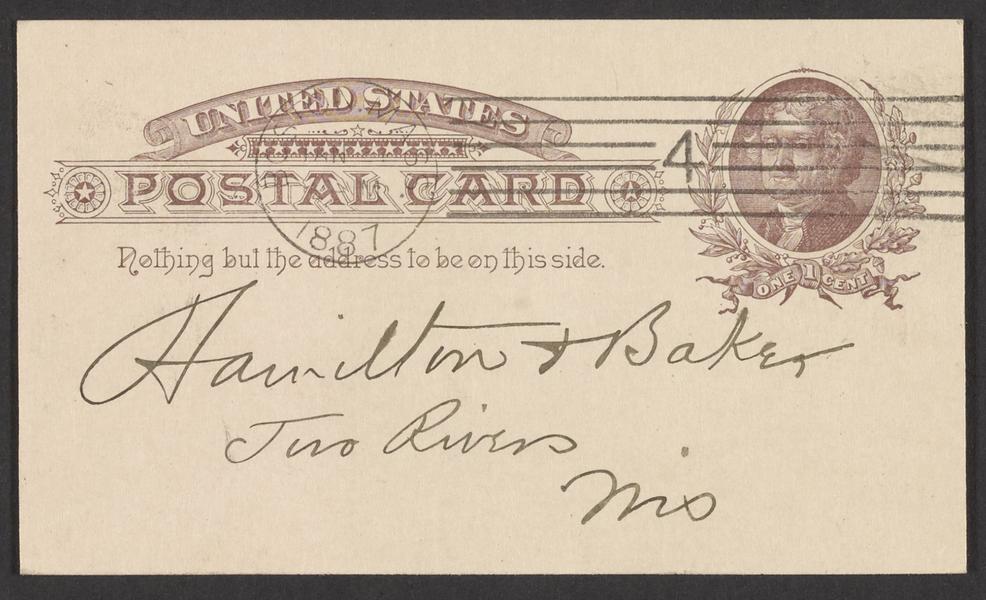 UNITED STATES
POSTAL CARD
JAN
1887
4
Nothing but the address to be on this side.
ONE 1 CENT
Hamilton & Baker
Two Rivers
Wis